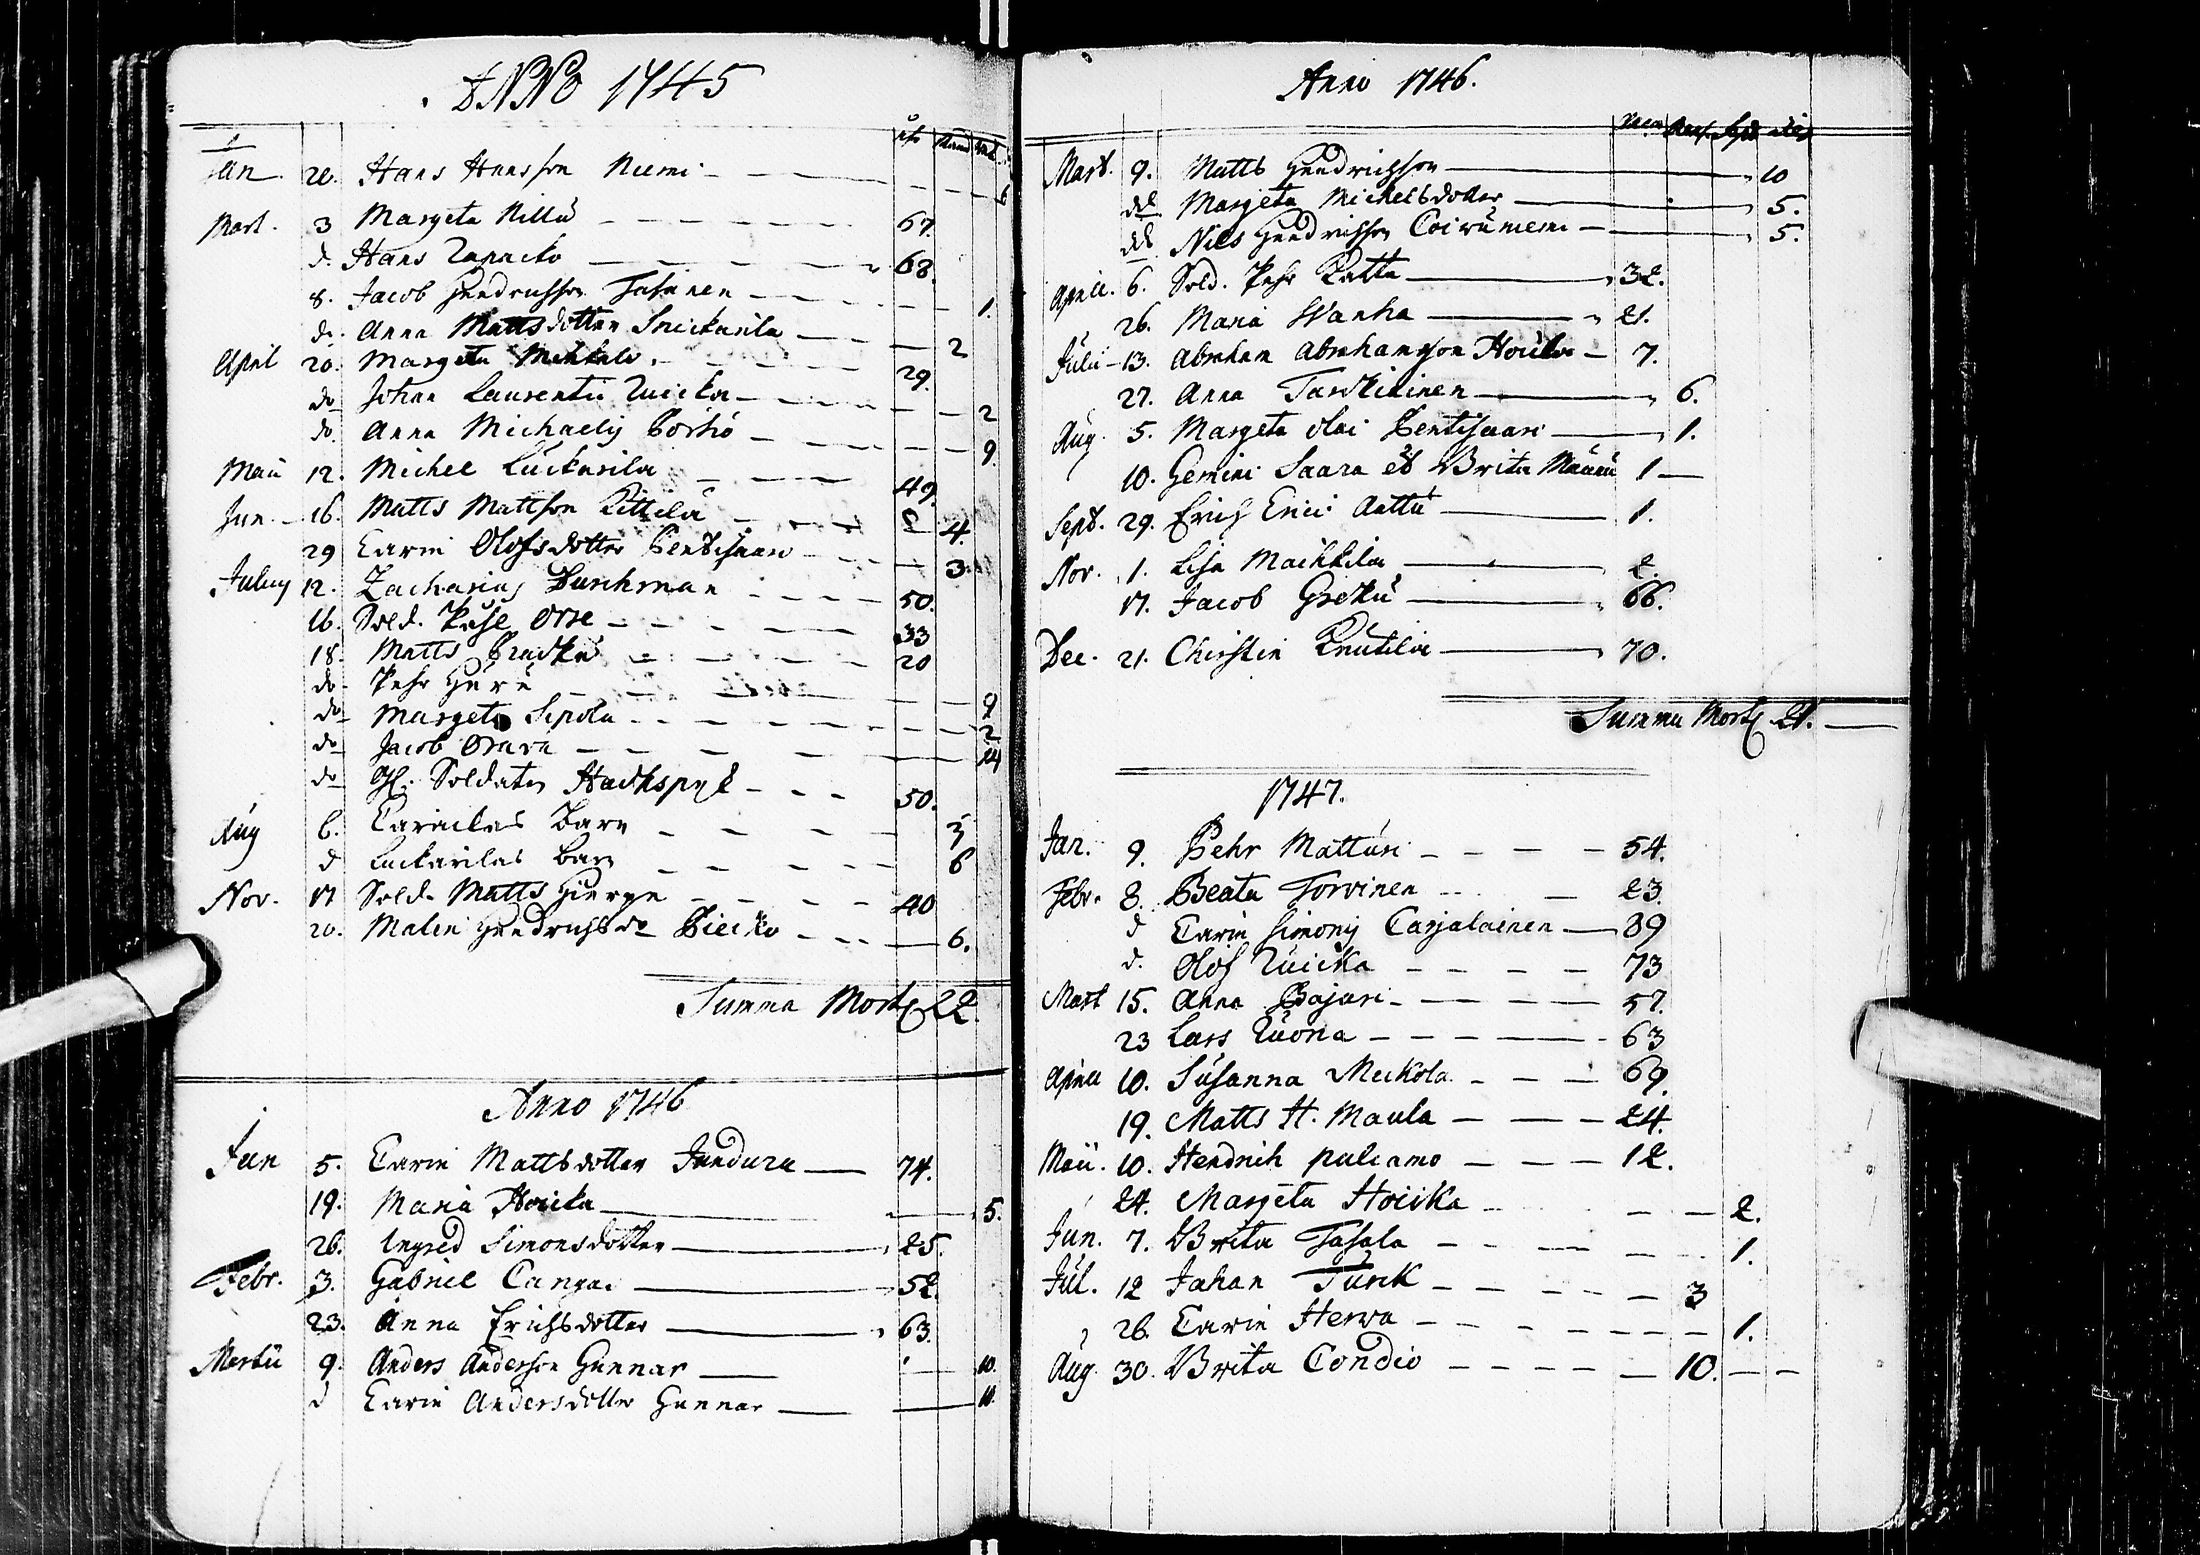 ANNO 1745
Jan. 20. Hans Hansson Niemi 6
Mart. 3 Margeta Nillu 67.
d. Hans 68.
8. Jacob Hendrichsson Tasanen 1.
d. Anna Mattsdotter Snickarila 2
April 20. Margeta 29.
do Johan Laurentii Rucka 2
do. Anna Michaelis 9
Maii 12. Michel Luckarila 49
Jun. 16. Matts Mattson Kittilä 4.
29 Carin Olofsdotter Pentisaari 3.
Julius 12. Zacharias Burchman 50.
16. Sold. Orre 33
18. Matts 20
do. Pehr 9
do Margeta Sipola 2
do Jacob Orava 14
do Soldaten Hachspyl 50.
Aug 6. Barn 5
d Luckarilas barn 6
Nov. 17 Sold. Matts 40
20. Malin Hendrichsdr 6.
Summa Mort. 22.
Anno 1746
Jan 5. Carin Mattsdotter Jundura 74.
19. Maria Houika 5.
26. Ingred Simonsdotter 25.
Febr. 3. Gabriel Cangas 52.
23. Anna Erichsdotter 63.
Martii 9. Anders Anderson Gunnar 10.
d Carin Andersdotter Gunnar 11.
Anno 1746.
Mart. 9. Matts Hendrichsson 10
dd Margeta Michelsdotter 5.
dd Nils Hendrichsson Coiwuniemi 5.
Aprill. 6. Sold. Pehr Ratta 32.
26. Maria Wanha 21.
Julii 13. Abraham Abrahamsson Houika 7.
27. Anna Taskinen 6.
Aug. 5. Margeta Olai Pentisaari 1.
10. Gemini Saara et Brita 1
Sept. 29. Erich Erici Aattu 1.
Nov. 1. Lisa 2.
17. Jacob 66.
Dec. 21. Christin Knutila 70.
Summa Mort. 21.
1747.
Jan. 9. Pehr Mattus 54.
Febr. 8. Beata Torvinen 23.
d Carin Simonis Carjalainen 39
d. Olof Rucka 73
Mart 15. Anna Pajari 57.
23 Lars Ruona 63
Aprill 10. Susanna Meckola 69.
19. Matts H. Maula 24.
Maii. 10. Hendrich paliamo 12.
24. Margeta Houika 2.
Jun. 7. Brita Tasala 1.
Jul. 12 Johan Turck 3
26. Carin Herva 1.
Aug. 30. Brita Condio 10.